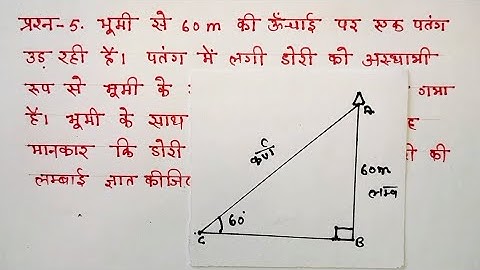 प्रश्न-5. भूमी से 60 m की ऊँचाई पर एक पतंग
उड़ रही है। पतंग में लगी डोरी को अस्थाभी
रूप से भूमी के गभा
है। भूमी के साथ
मानकार कि डोरी की
लम्बाई ज्ञात कीजिए
A
C
कर्ण
60m
लम्ब
60°
C
B